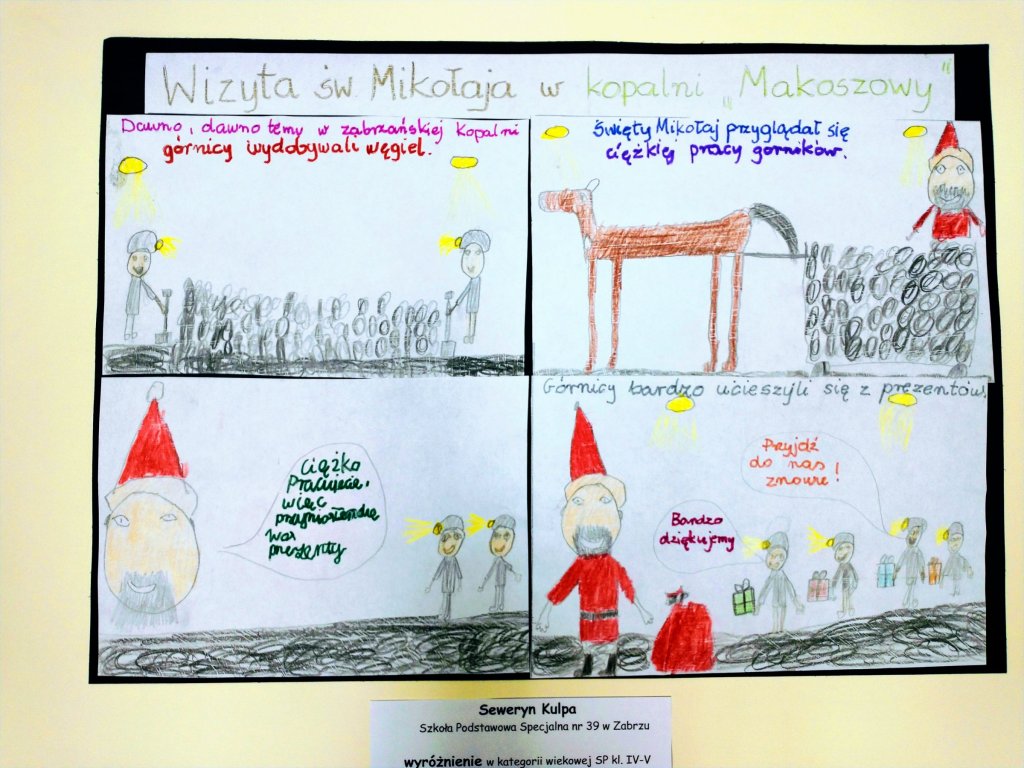 Wizyta św Mikołaja w kopalni „Makoszowy"
Dawno, dawno temy w zabrzańskiej kopalni
górnicy wydobywali węgiel.
Święty Mikołaj przyglądał się
ciężkiej pracy górników.
Ciężko
Pracujecie,
więc
was
prezenty
Górnicy bardzo ucieszyli się z prezentów.
Przyjdź
do nas
znowu!
Bardzo
dziękujemy
Seweryn Kulpa
Szkoła Podstawowa Specjalna nr 39 w Zabrzu
wyróżnienie w kategorii wiekowej SP kl. IV-V